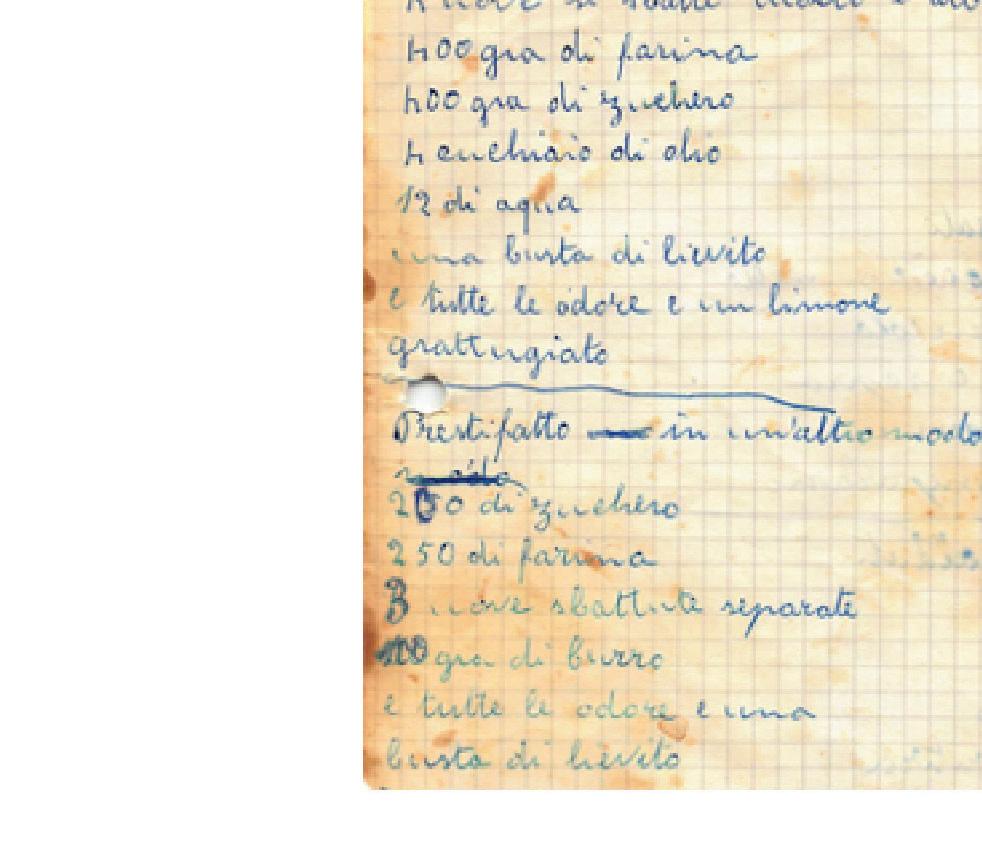 400 gra di farina
400 gra di zuchero
4 cuchiaio di olio
12 di aqua
una busta di lievito
e tutte le odore e un limone
grattugiato
Prestifatto in un'altro modo
modo
250 di zuchero
250 di farina
3 uove sbattute separate
100 gra di burro
e tutte le odore e una
busta di lievito